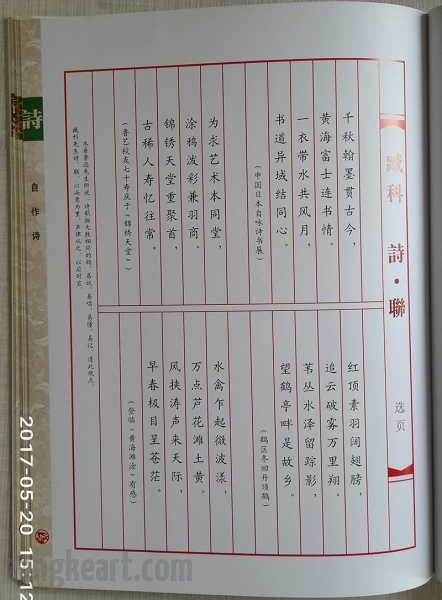 臧科 詩·聯
选页
千秋翰墨贯古今，
黄海富士连书情。
一衣带水共风月，
书道异域结同心。
（中国日本自咏诗书展）
为求艺术本同堂，
涂鸦波彩兼羽商。
锦锈天堂重聚首，
古稀人寿忆往常。
（鲁艺校友七十寿庆于“锦绣天堂”）
红顶素羽阔翅膀，
追云破雾万里翔。
苇丛水泽留踪影，
望鹤亭畔是故乡。
（鹤区冬回丹顶鹤）
水禽乍起微波漾，
万点芦花滩土黄。
风挟涛声来天际，
早春极目呈苍茫。
（登临“黄海滩涂”有感）
本着鲁迅先生所说：诗歌按大致相同的韵，易说、易唱、易懂、易记，遵此观点。
臧科先生诗、联，以尚意为重，声律从之，以应时宜。
詩
自作诗
2017-05-20 15:12
ngkeart.com